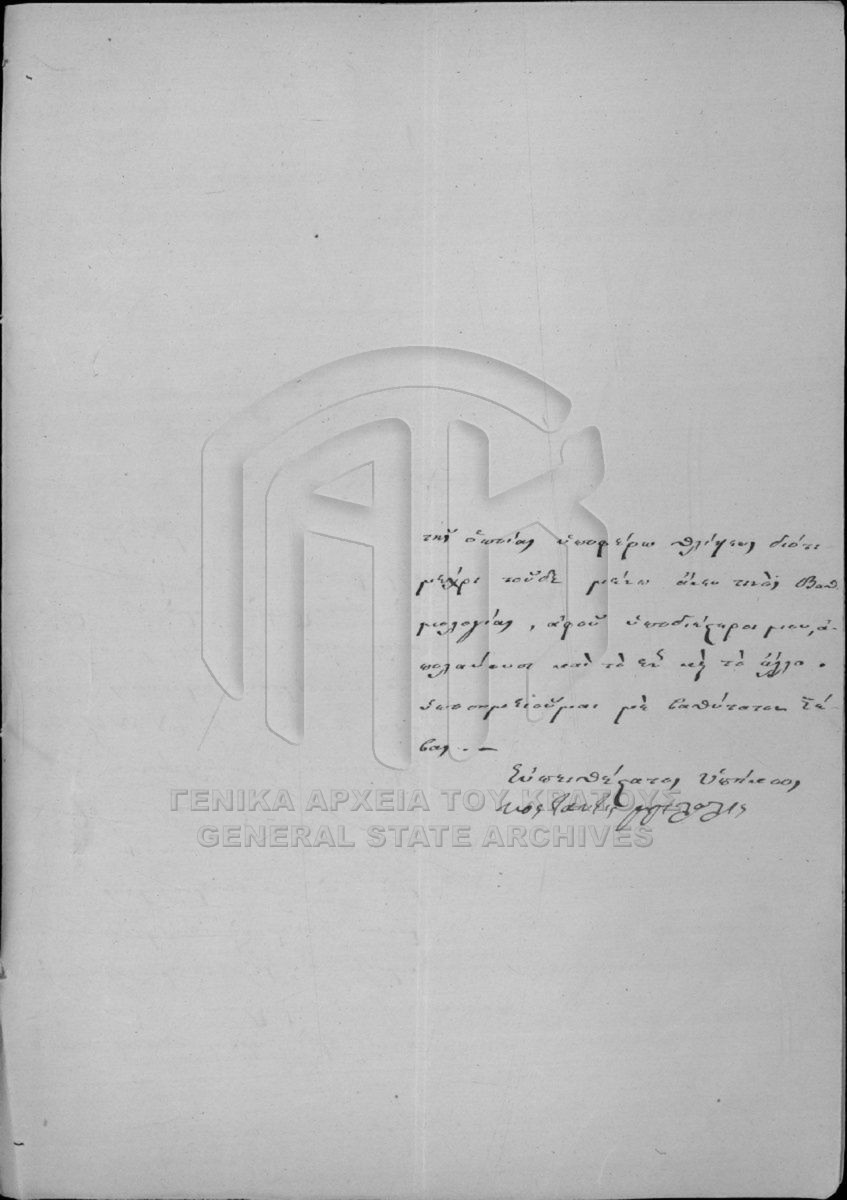 τῆς ὁποίας ὑποφέρω θλίψεις διότι
μέχρι τοῦδε μένω ἄνευ τινὸς Βαθ
μολογίας, ἀφοῦ ὑποδιέςεροί μου, ἀ-
πολαύουσι καὶ τὸ ἓν κ τὸ ἄλλο.
ὑποσημειοῦμαι μὲ βαθύτατον Σέ-
βας. —
Εὐπειθέςατος Ὑπήκοος
ΓΕΝΙΚΑ ΑΡΧΕΙΑ ΤΟΥ ΚΡΑΤΟΥΣ
GENERAL STATE ARCHIVES